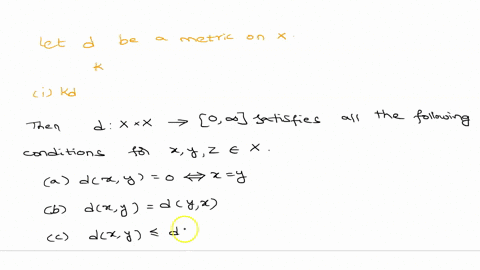 Let d be a metric on x.
k
(i) kd
Then d: X × X → [0,∞] satisfies all the following
conditions for x, y, z ∈ X.
(a) d(x, y) = 0 ⇔ x = y
(b) d(x, y) = d(y, x)
(c) d(x, y) ≤ d